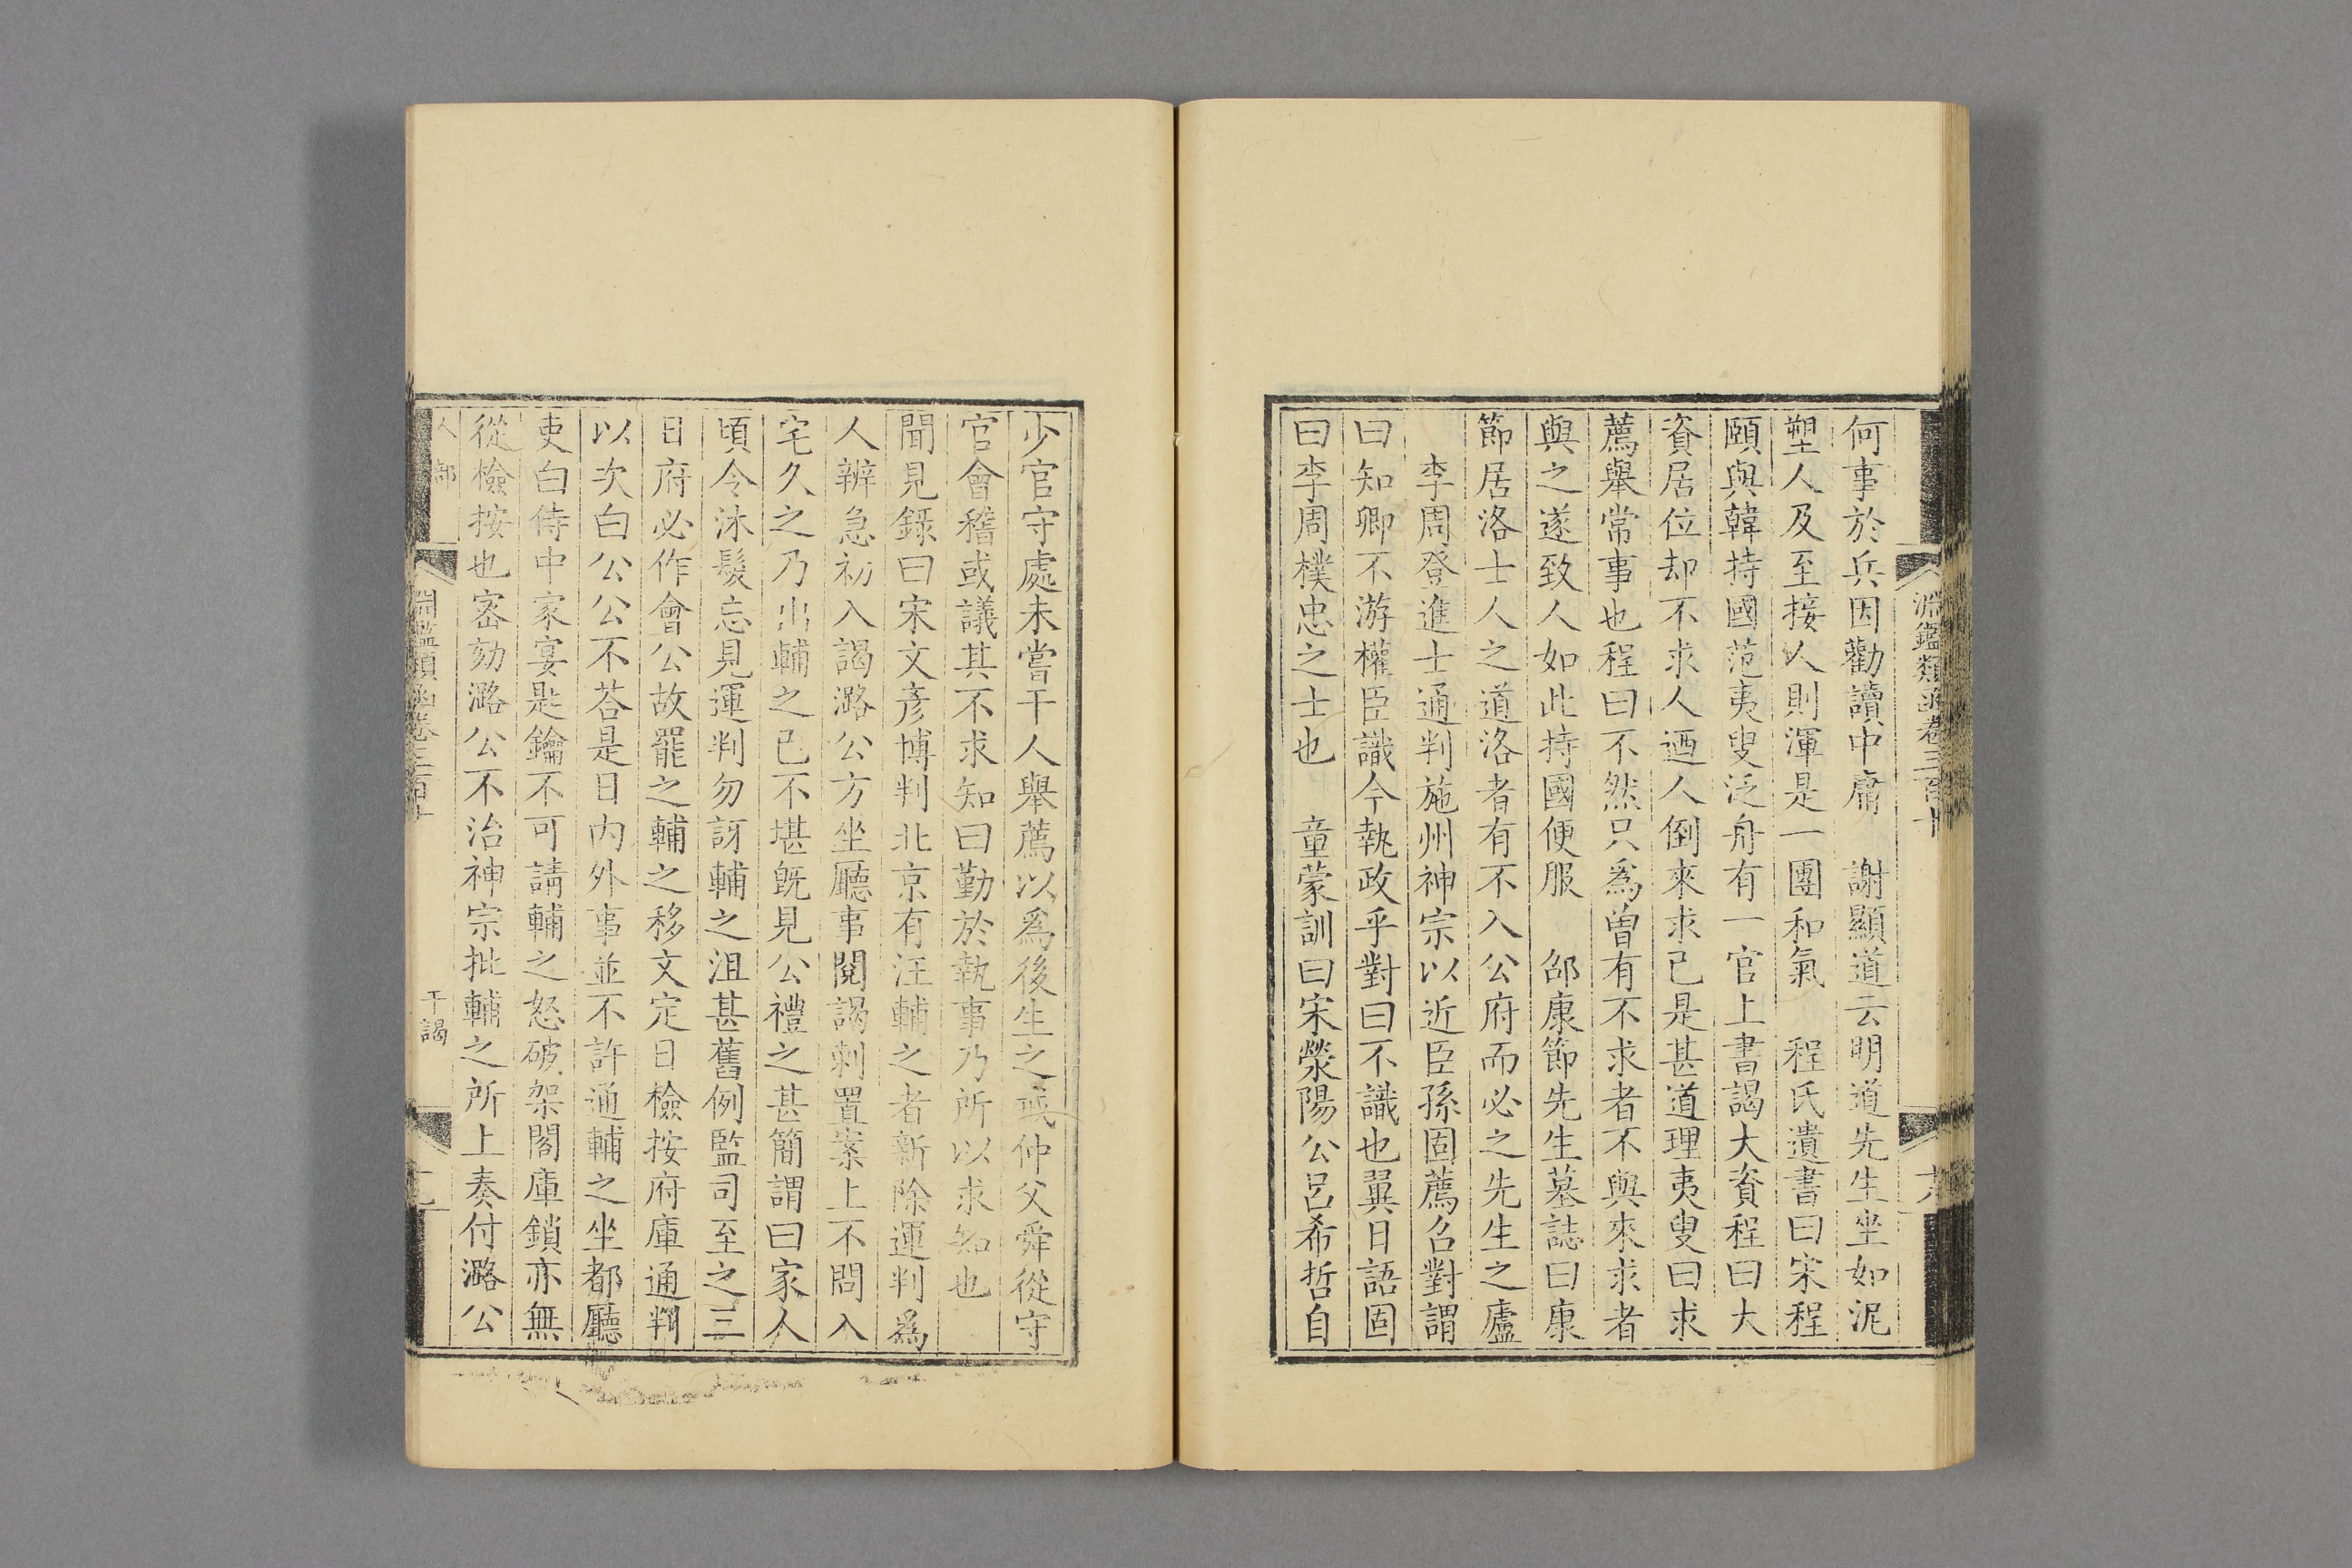 淵鑑類函卷三百十
何事於兵因勸讀中庸　謝顯道云明道先生坐如泥
塑人及至接人則渾是一團和氣　程氏遺書曰宋程
頤與韓持國范夷叟泛舟有一官上書謁大資程曰大
資居位却不求人迺人倒來求己是甚道理夷叟曰求
薦舉常事也程曰不然只爲曾有不求者不與來求者
與之遂致人如此持國便服　邵康節先生墓誌曰康
節居洛士人之道洛者有不入公府而必之先生之廬
李周登進士通判施州神宗以近臣孫固薦召對謂
曰知卿不游權臣識今執政乎對曰不識也翼日語固
曰李周樸忠之士也　童蒙訓曰宋滎陽公呂希哲自
少官守處未嘗干人舉薦以爲後生之戒仲父舜從守
官會稽或議其不求知曰勤於執事乃所以求知也
聞見錄曰宋文彥博判北京有汪輔之者新除運判爲
人辨急初入謁潞公方坐廳事閱謁刺置案上不問入
宅久之乃出輔之已不堪旣見公禮之甚簡謂曰家人
頃令沐髮忘見運判勿訝輔之沮甚舊例監司至之三
日府必作會公故罷之輔之移文定日檢按府庫通判
以次白公公不荅是日內外事並不許通輔之坐都廳
吏白侍中家宴匙鑰不可請輔之怒破架閣庫鎖亦無
從檢按也密劾潞公不治神宗批輔之所上奏付潞公
人部
淵鑑類函卷三百十
干謁